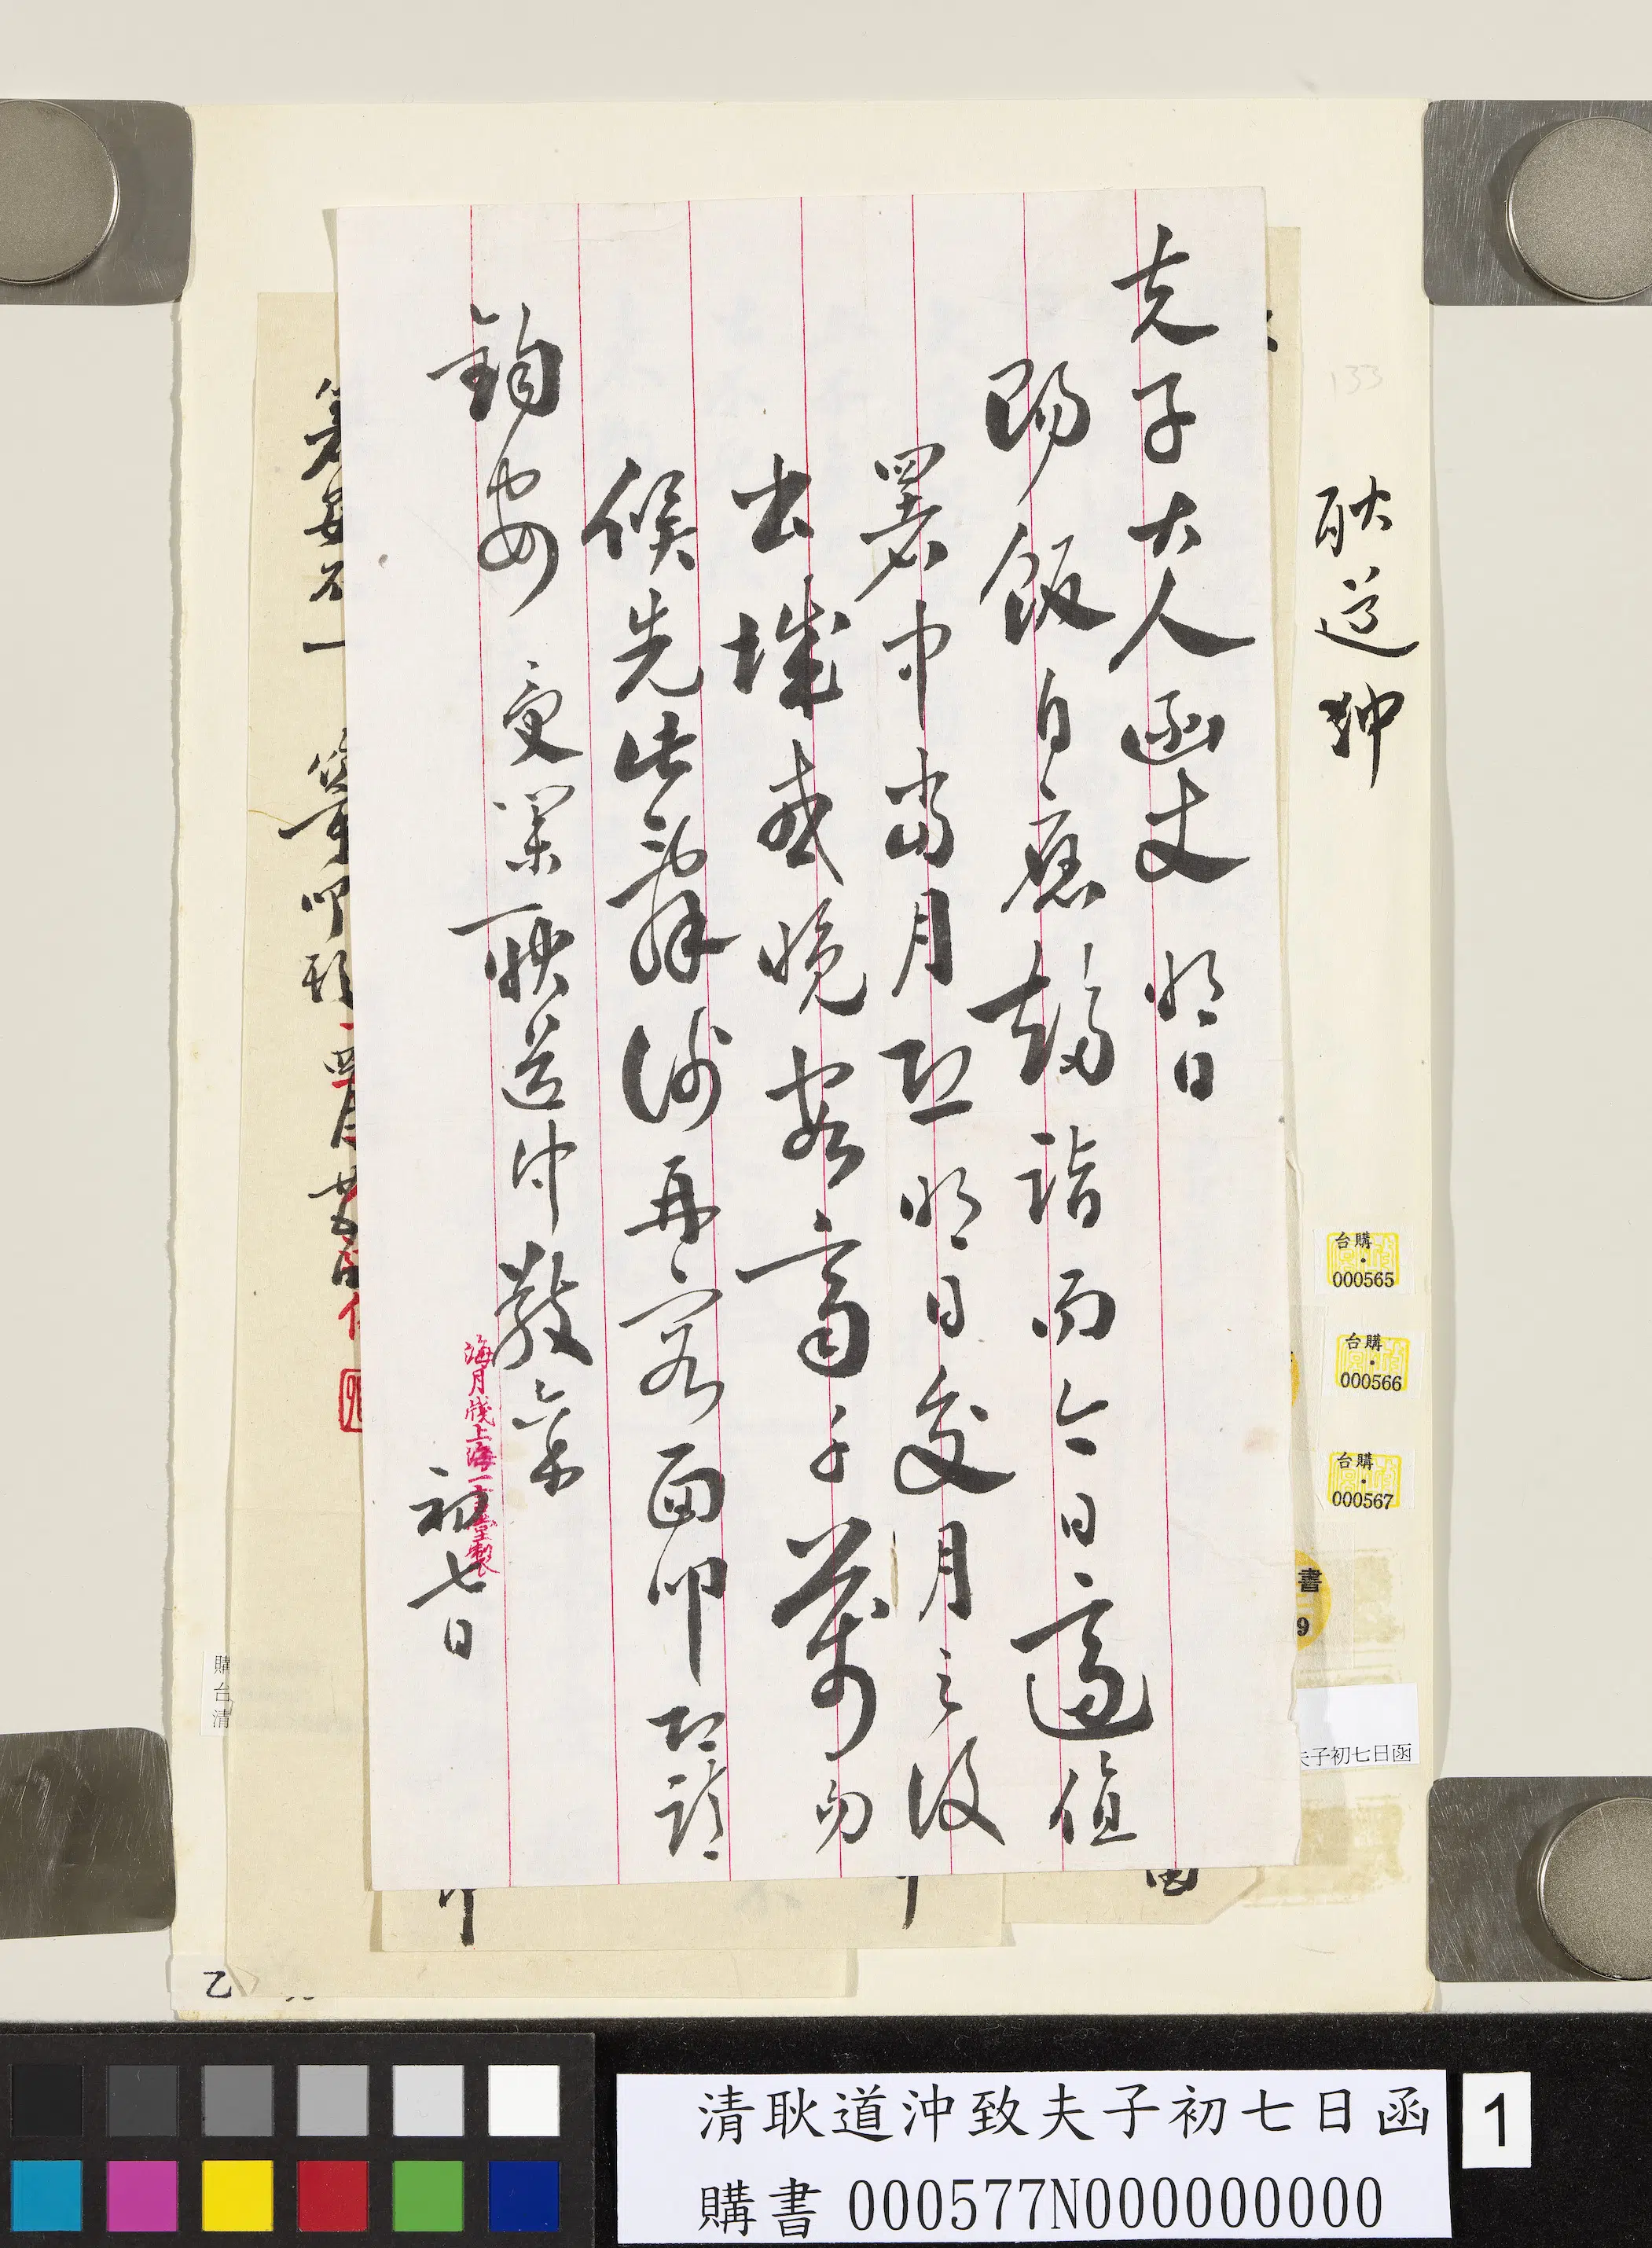 夫子大人函丈 明日
賜飯自應趨詣而今日適值
署中當月恐明日交月之後
出城或晚容齋千萬勿
候先此肅謝再容面叩敬請
鈞安 受業耿道沖敬稟
初七日
海月牋上海一言堂製
耿道沖
台購
000565
台購
000566
台購
000567
書
9
夫子初七日函
購
台
清
乙
清耿道沖致夫子初七日函
購書 000577N000000000
1